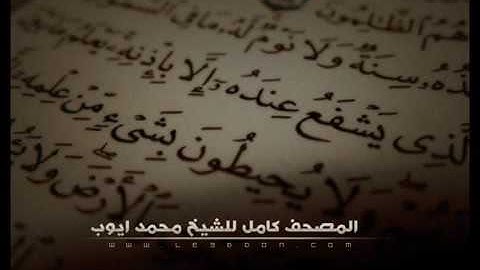 هُمُ الظَّالِمُونَ
ـذُهُ سِنَةٌ وَلَا نَوْمٌ لَّهُ مَا فِي
الَّذِي يَشْفَعُ عِندَهُ إِلَّا بِإِذْنِهِ يَعْلَمُ مَا بَيْنَ
وَلَا يُحِيطُونَ بِشَيْءٍ مِّنْ عِلْمِهِ
الْأَرْضَ وَلَا
المصحف كامل للشيخ محمد ايوب